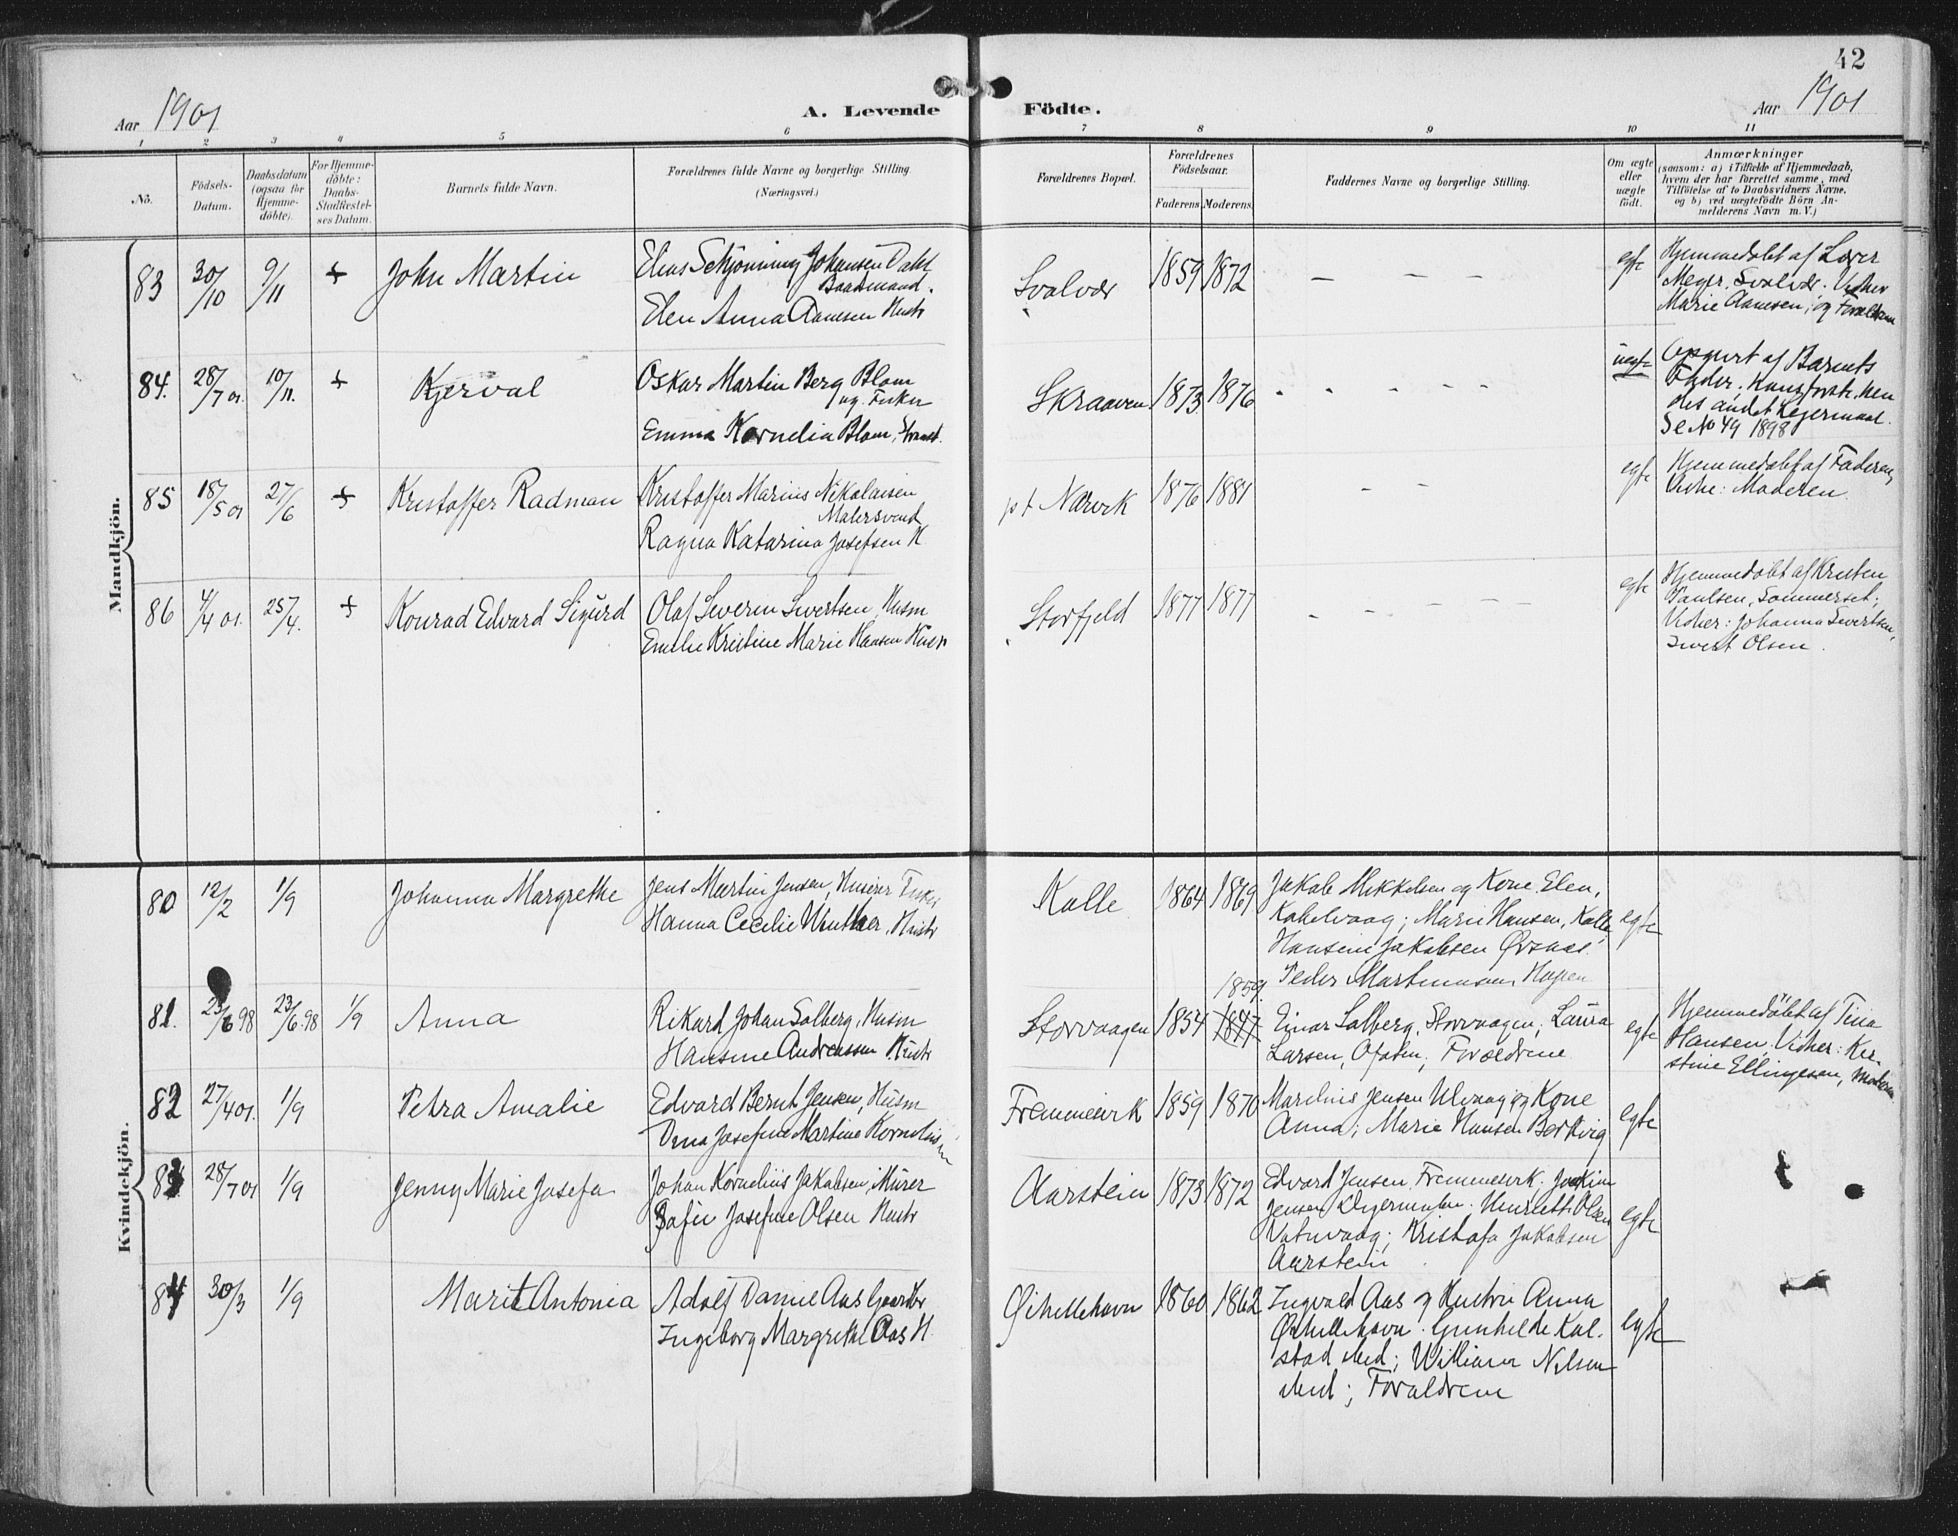 42
Aar 1901
A. Levende
Födte.
Aar 1901
1 2 3 4 5 6 7 8 9 10 11
No.
Födsels-
Datum.
Daabsdatum
(ogsaa for
Hjemme-
döbte).
For Hjemme-
döbte:
Daabs-
Stadfestel-
ses Datum.
Barnets fulde Navn.
Forældrenes fulde Navne og borgerlige Stilling.
(Næringsvei.)
Forældrenes Bopæl.
Forældrenes
Födselsaar.
Faderens. Moderens.
Faddernes Navne og borgerlige Stilling.
Om ægte
eller
uægte
födt.
Anmærkninger
(saasom: a) i Tilfælde af Hjemmedaab,
hvem der har forrettet samme, med
Tilföielse af to Daabsvidners Navne,
og b) ved uægtefödte Börn An-
melderens Navn m. V.)
Mandkjön.
83 30/10 9/11 + John Martin
Elias Schjönning Johansen Dahl
Baadsmand.
Elen Anna Aanesen Hustr
Svolvær 1859 1872 — — — egte
Hjemmedøbt af
Meyer, Svolvær. Vidner
Marie Aanesen, og Foreldrene
84. 28/7 01. 10/11. + Kjerval
Oskar Martin Berg Blom
ug. Fisker
Emma Kornelia Blom,
Skraaven 1873 1876 - - - - - uegte
Opgivt af Barnets
Fader, Hans første, hen
des andet Leiermaal.
Se No 49 1898
85 18/5 01 27/6 + Kristoffer Radman
Kristoffer Marius Nikolaisen
Malersvend
Ragna Katarina Josefsen H.
pt Narvik 1876 1881 - - egte
Hjemmedøbt af Faderen,
Vidne: Moderen.
86 4/4 01. 25/4. + Konrad Edvard Sigurd
Olaf Severin Sivertsen, Husm
Emilie Kristine Marie Hansen Hustr
Storfjeld 1877 1877 - - - - egte
Hjemmedøbt af Kristen
Paulsen, Sommerset;
Vidner: Johanna Sivertsen,
Sivert Olsen.
Kvindekjön.
80 12/2 1/9 Johanna Margrethe
Jens Martin Jensen, Fisker
Hanna Cecilie Hustr
Kalle 1864 1869
Jakob Mikkelsen og Kone Elen,
Kabelvaag; Marie Hansen, Kalle,
Hansine Jakobsen Ørsnes.
Peder Martinussen Hopen
egte
81. 23/6 98 23/6.98 1/9 Anna
Rikard Johan Solberg, Husm
Hansine Andreassen Hustr
Storvaagen 1854 1859. 1847
Einar Solberg, Storvaagen; Laura
Larsen, Ofoten; Forældrene
egte
Hjemmedöbt af Tina
Hansen, Vidner: Kri-
stine Ellingsen, Moderen
82 27/4 01. 1/9 Petra Amalie
Edvard Bernt Jensen, Husm
Dina Josefine Martine
Fremmesvik 1859 1870
Marelius Jensen Ulvaag og Kone
Anna; Marie Hansen
egte
83 28/7 01 1/9 Jenny Marie Josefa
Johan Kornelius Jakobsen, Murer
Josefine Olsen Hustr
Aarstein 1873 1872
Edvard Jensen, Fremmesvik. Joakim
Jensen Henriette Olsen
Vatnvaag; Kristofa Jakobsen
Aarstein
egte
84 30/3 1/9 Marit Antonia
Adolf Daniel Aas
Ingeborg Margrethe Aas H.
Øihellehavn 1860 1862
Ingvald Aas og Hustru Anna
Øihellehavn. Gunhilde Kal-
stad ibid; William Nilsen
ibid; Forældrene
egte